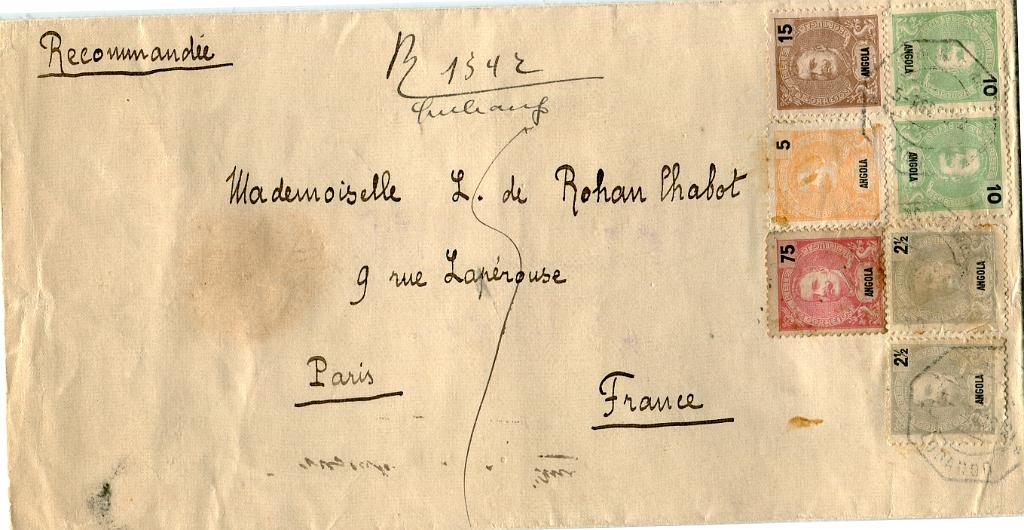 Recommandée
R 1542
Mademoiselle L. de Rohan Chabot
9 rue Lapérouse
Paris
France
15 ANGOLA
ANGOLA 10
5 ANGOLA
ANGOLA 10
75 ANGOLA
2½ ANGOLA
2½ ANGOLA